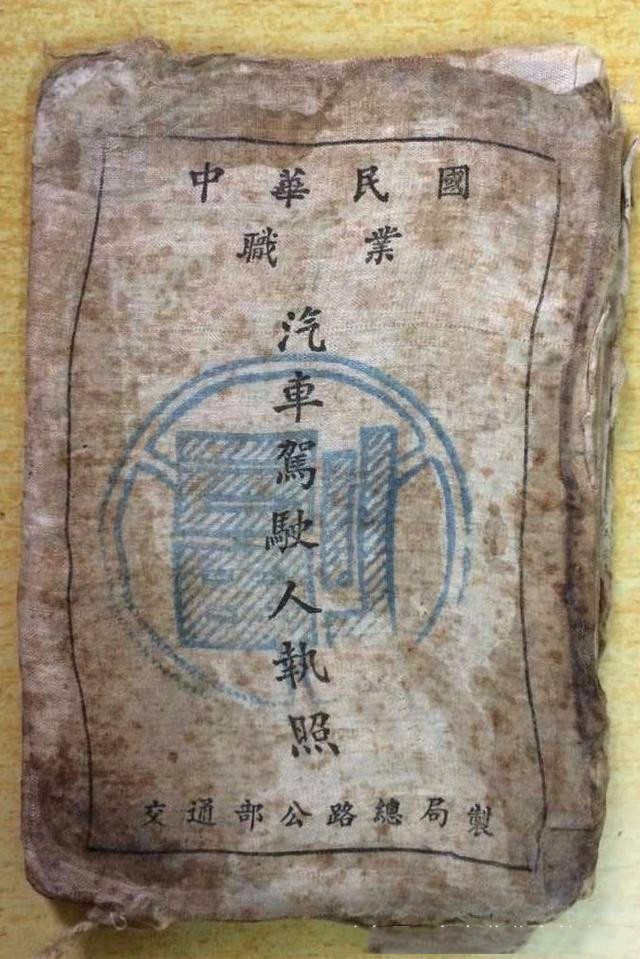 中華民國
職業
汽車駕駛人執照
交通部公路總局製